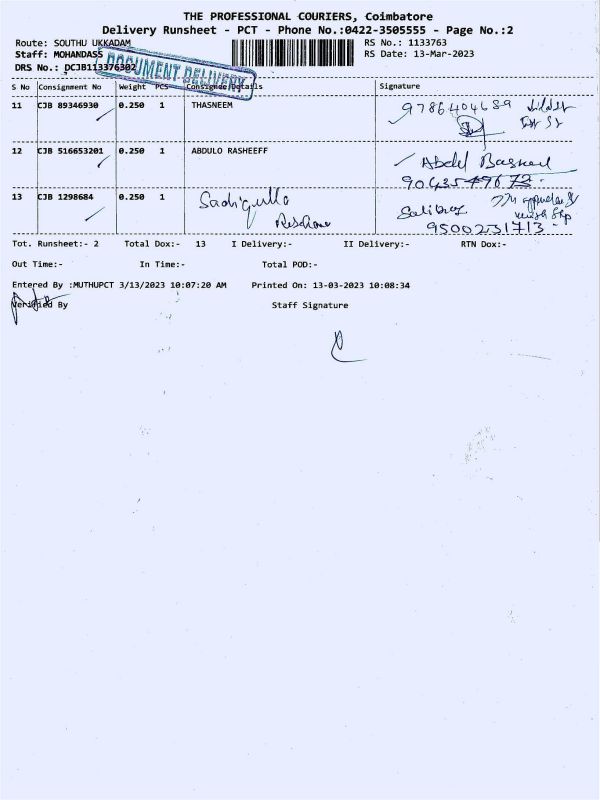 THE PROFESSIONAL COURIERS, Coimbatore
Delivery Runsheet - PCT - Phone No.:0422-3505555 - Page No.:2
Route: SOUTHU UKKADAM
RS No.: 1133763
Staff: MOHANDASS
RS Date: 13-Mar-2023
DRS No.: DCJB113376302
DOCUMENT DELIVERY
S No Consignment No Weight PCS Consignee Details Signature
11 CJB 89346930 0.250 1 THASNEEM 9786404689
12 CJB 516653201 0.250 1 ABDULO RASHEEFF Abdul
13 CJB 1298684 0.250 1 Sadiqulla
9500231713
Tot. Runsheet:- 2 Total Dox:- 13 I Delivery:- II Delivery:- RTN Dox:-
Out Time:- In Time:- Total POD:-
Entered By :MUTHUPCT 3/13/2023 10:07:20 AM Printed On: 13-03-2023 10:08:34
Verified By Staff Signature